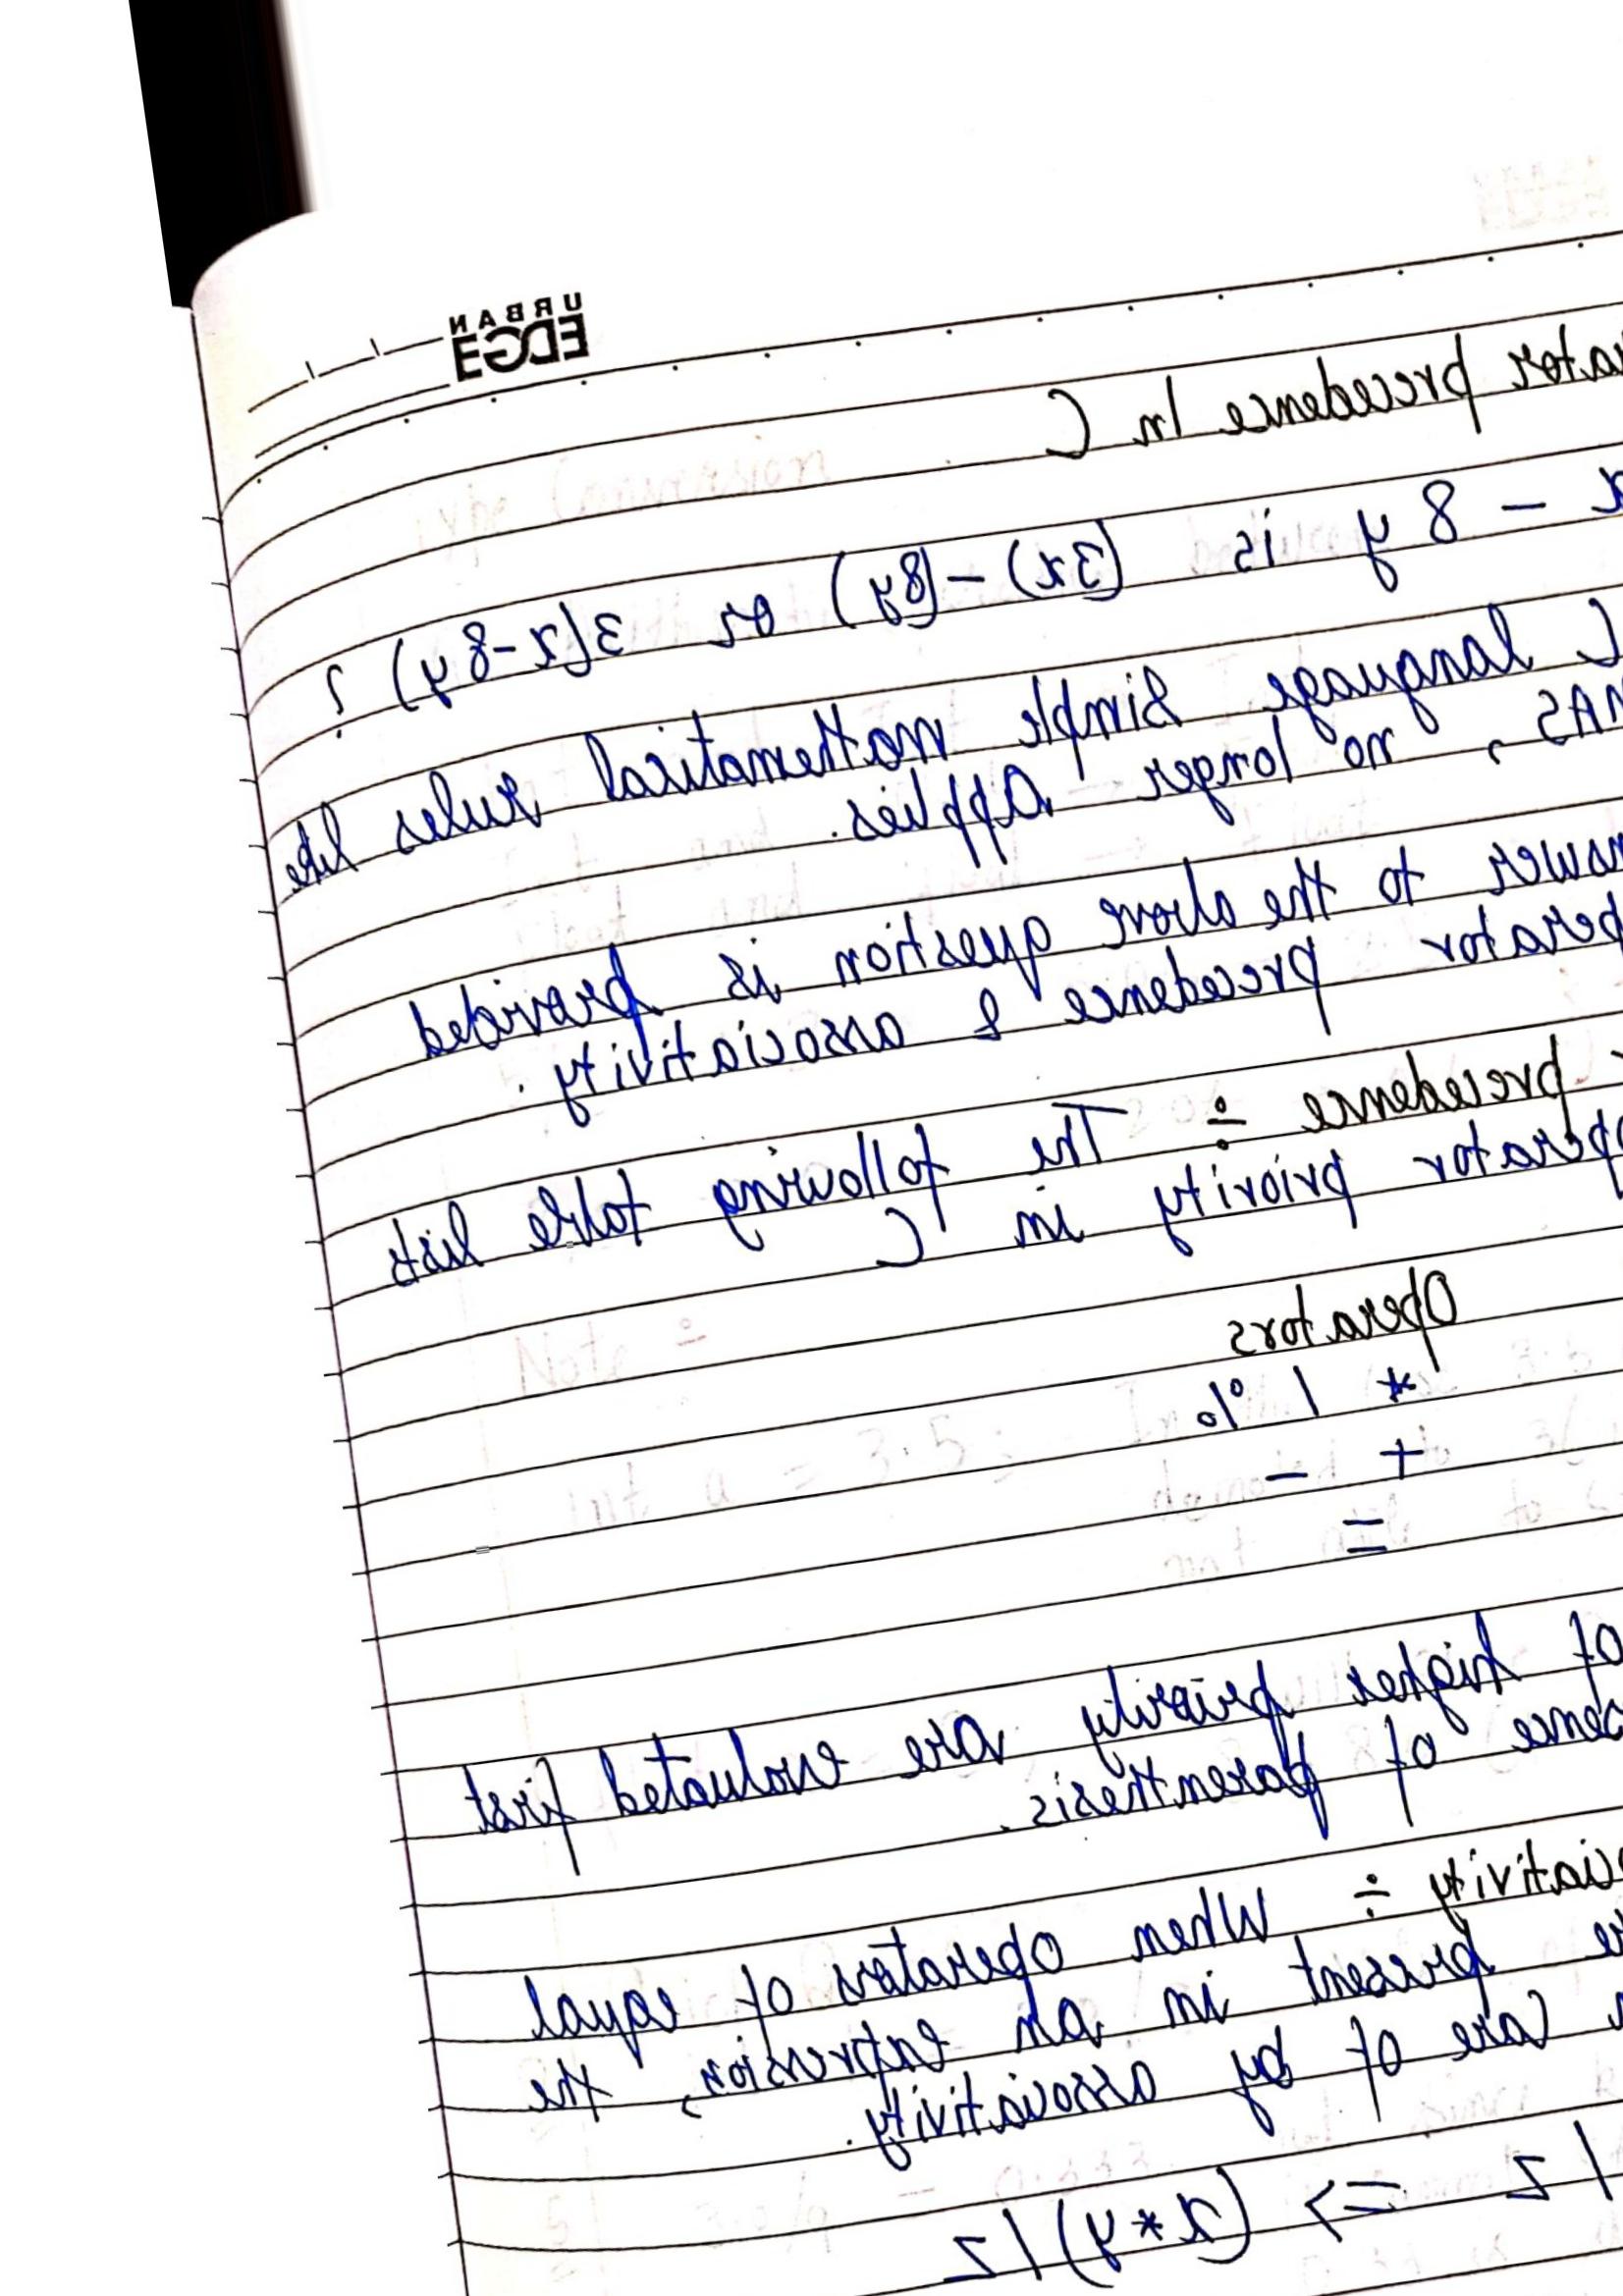 URBAN
EDGE
precedence In C
- 8y is (3x)-(8y) or 3(x-8y) ?
C language simple mathematical rules like
, no longer applies.
to the above question is provided
precedence & associativity.
precedence ÷ The following table lists
priority in C
Operators
* / %
+ -
=
of higher priority are evaluated first
of parenthesis.
÷ When operators of equal
present in an expression, the
care of by associativity.
/ z => (x*y)/z